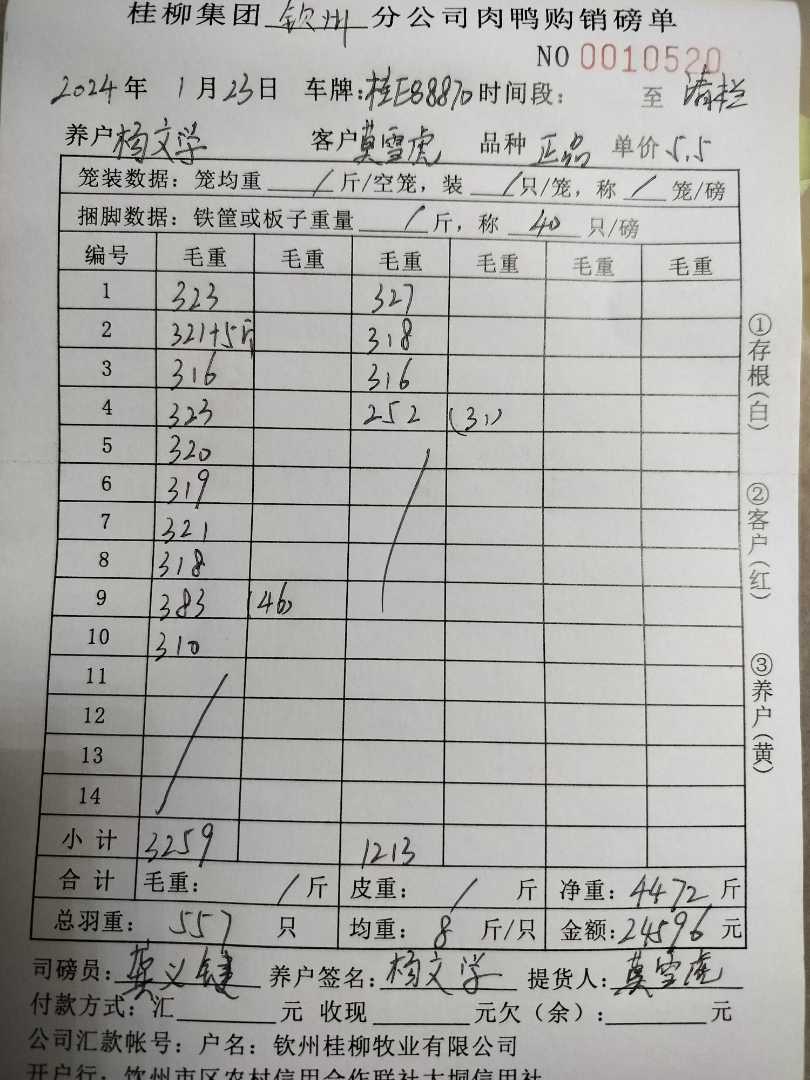 桂柳集团 钦州 分公司肉鸭购销磅单
NO 0010520
2024年 1月23日 车牌:桂E88870 时间段: 至 清栏
养户 杨文学 客户 莫雪虎 品种 正品 单价 5.5
笼装数据：笼均重 / 斤/空笼，装 / 只/笼，称 / 笼/磅
捆脚数据：铁筐或板子重量 / 斤，称 40 只/磅
编号 毛重 毛重 毛重 毛重 毛重 毛重
1 323 327
2 321+5斤 318
3 316 316
4 323 252 (31)
5 320
6 319
7 321
8 318
9 383 (46)
10 310
11
12
13
14
小计 3259 1213
合计 毛重： / 斤 皮重： / 斤 净重：4472 斤
总羽重： 557 只 均重：8 斤/只 金额:24596 元
司磅员: 莫义键 养户签名: 杨文学 提货人: 莫雪虎
付款方式:汇 元 收现 元欠（余）: 元
公司汇款帐号：户名：钦州桂柳牧业有限公司
开户行：钦州市区农村信用合作联社大垌信用社
①存根(白)
②客户(红)
③养户(黄)